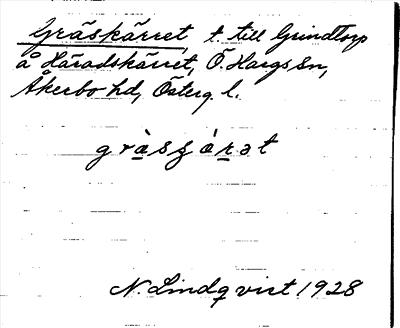 Gräskärret, t. till Grindtorp
å Häradskärret, Ö. Hargs sn,
Åkerbo hd, Österg. l.
gràsʒárət
N. Lindqvist 1928